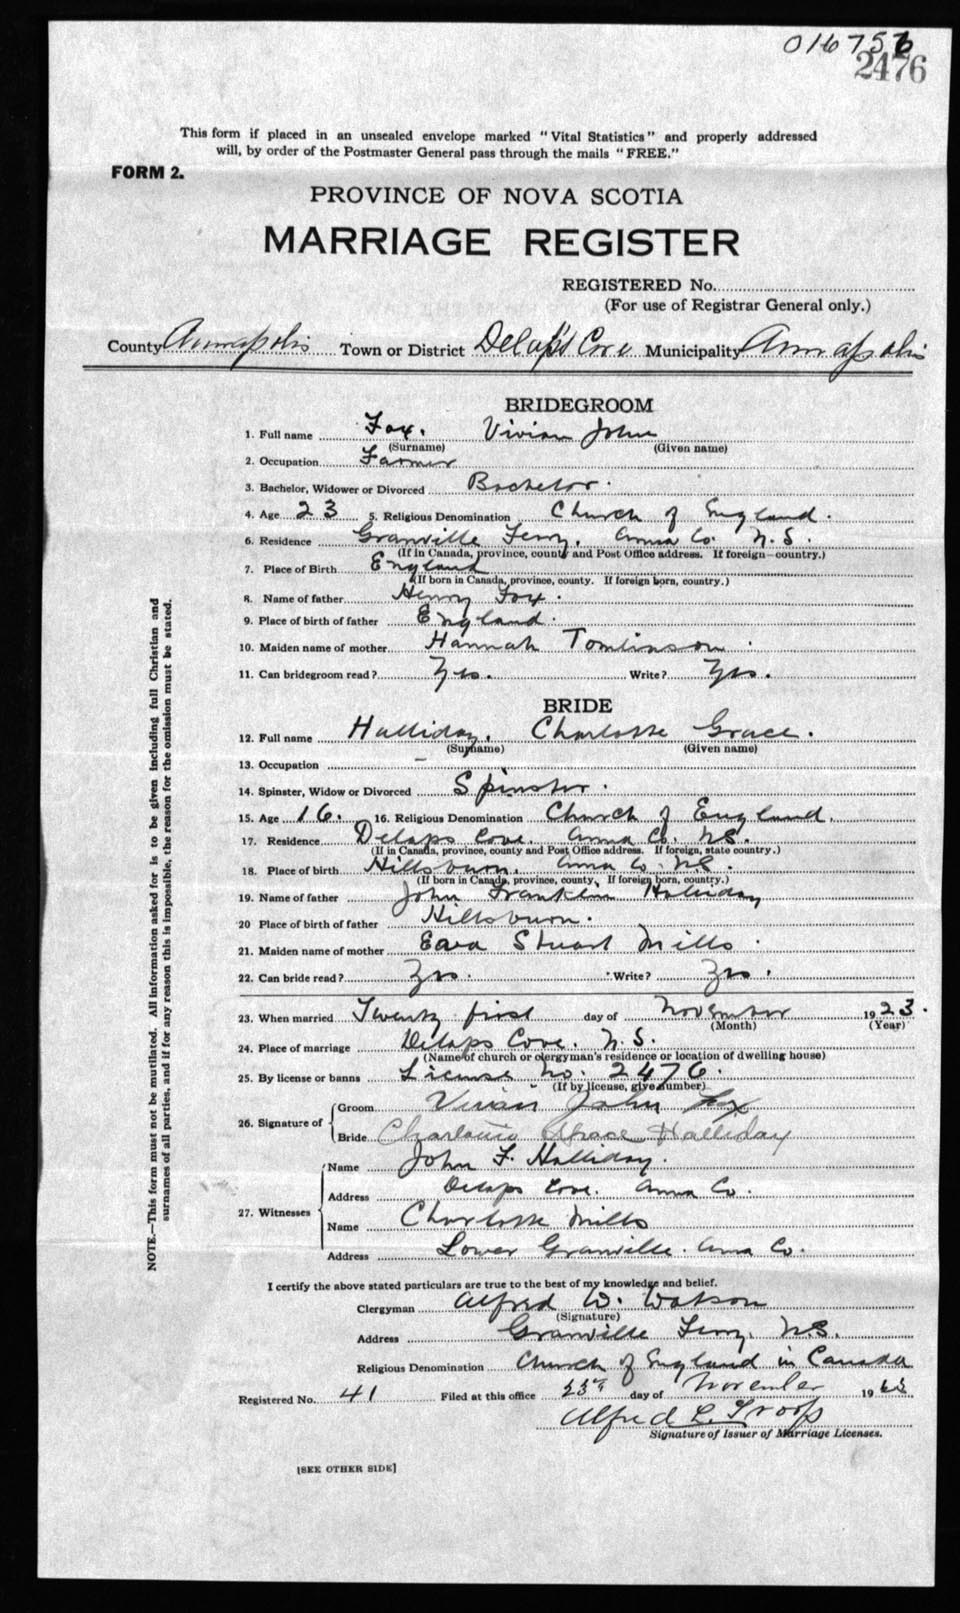 016756
2476
This form if placed in an unsealed envelope marked "Vital Statistics" and properly addressed
will, by order of the Postmaster General pass through the mails "FREE."
FORM 2.
PROVINCE OF NOVA SCOTIA
MARRIAGE REGISTER
REGISTERED No.
(For use of Registrar General only.)
County Annapolis Town or District Delap's Cove Municipality Annapolis
BRIDEGROOM
1. Full name Fox. Vivian John
(Surname) (Given name)
2. Occupation Farmer
3. Bachelor, Widower or Divorced Bachelor.
4. Age 23 5. Religious Denomination Church of England.
6. Residence Granville Ferry. Anna Co. N.S.
(If in Canada, province, county and Post Office address. If foreign—country.)
7. Place of Birth England
(If born in Canada, province, county. If foreign born, country.)
8. Name of father Henry Fox.
9. Place of birth of father England.
10. Maiden name of mother Hannah Tomlinson.
11. Can bridegroom read? Yes. Write? Yes.
BRIDE
12. Full name Halliday. Charlotte Grace.
(Surname) (Given name)
13. Occupation –
14. Spinster, Widow or Divorced Spinster.
15. Age 16. 16. Religious Denomination Church of England.
17. Residence Delaps Cove. Anna Co. N.S.
(If in Canada, province, county and Post Office address. If foreign, state country.)
18. Place of birth Hillsburn. Anna Co. N.S.
(If born in Canada, province, county. If foreign born, country.)
19. Name of father John Franklin Halliday
20 Place of birth of father Hillsburn.
21. Maiden name of mother Stuart Mills.
22. Can bride read? Yes. Write? Yes.
23. When married Twenty first day of November 1923.
(Month) (Year)
24. Place of marriage Delaps Cove. N.S.
(Name of church or clergyman's residence or location of dwelling house)
25. By license or banns License No. 2476.
(If by license, give number)
26. Signature of Groom Vivan John Fox
Bride Charlotte Grace Halliday
27. Witnesses Name John F. Halliday.
Address Delaps Cove. Anna Co.
Name Charlotte Mills
Address Lower Granville. Anna Co.
I certify the above stated particulars are true to the best of my knowledge and belief.
Clergyman Alfred W. Watson
(Signature)
Address Granville Ferry. N.S.
Religious Denomination Church of England in Canada
Registered No. 41 Filed at this office day of November 19
Alfred L. Troop
Signature of Issuer of Marriage Licenses.
[SEE OTHER SIDE]
NOTE.—This form must not be mutilated. All information asked for is to be given including full Christian and
surnames of all parties, and if for any reason this is impossible, the reason for the omission must be stated.